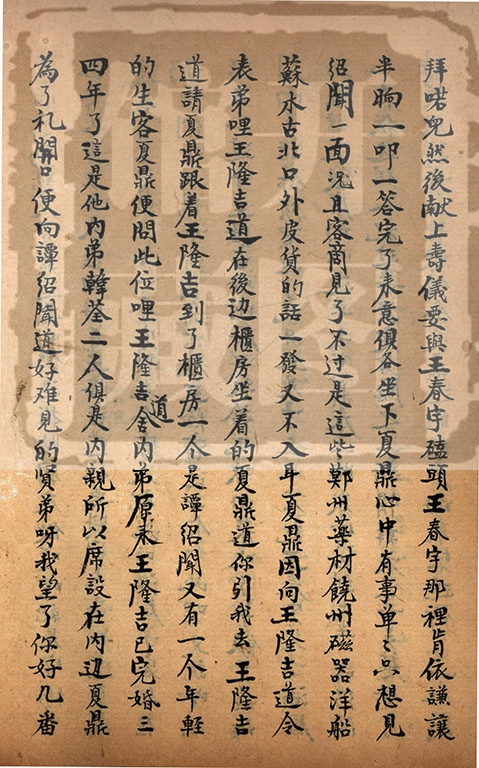 拜喏兒然後献上壽儀要與王春宇磕頭王春宇那裡肯依謙讓
半晌一叩一答完了来意俱各坐下夏鼎心中有事单〻只想見
紹聞一面况且客商見了不过是這些鄭州藥材饒州磁器洋船
蘇木古北口外皮貨的話一發又不入耳夏鼎因向王隆吉道令
表弟哩王隆吉道在後边櫃房坐着的夏鼎道你引我去王隆吉
道請夏鼎跟着王隆吉到了櫃房一个是譚紹聞又有一个年輕
的生客夏鼎便問此位哩王隆吉道舍内弟原来王隆吉已完婚三
四年了這是他内弟韓荃二人俱是内親所以席設在内边夏鼎
為了礼開口便向譚紹聞道好难見的贤弟呀我望了你好几番